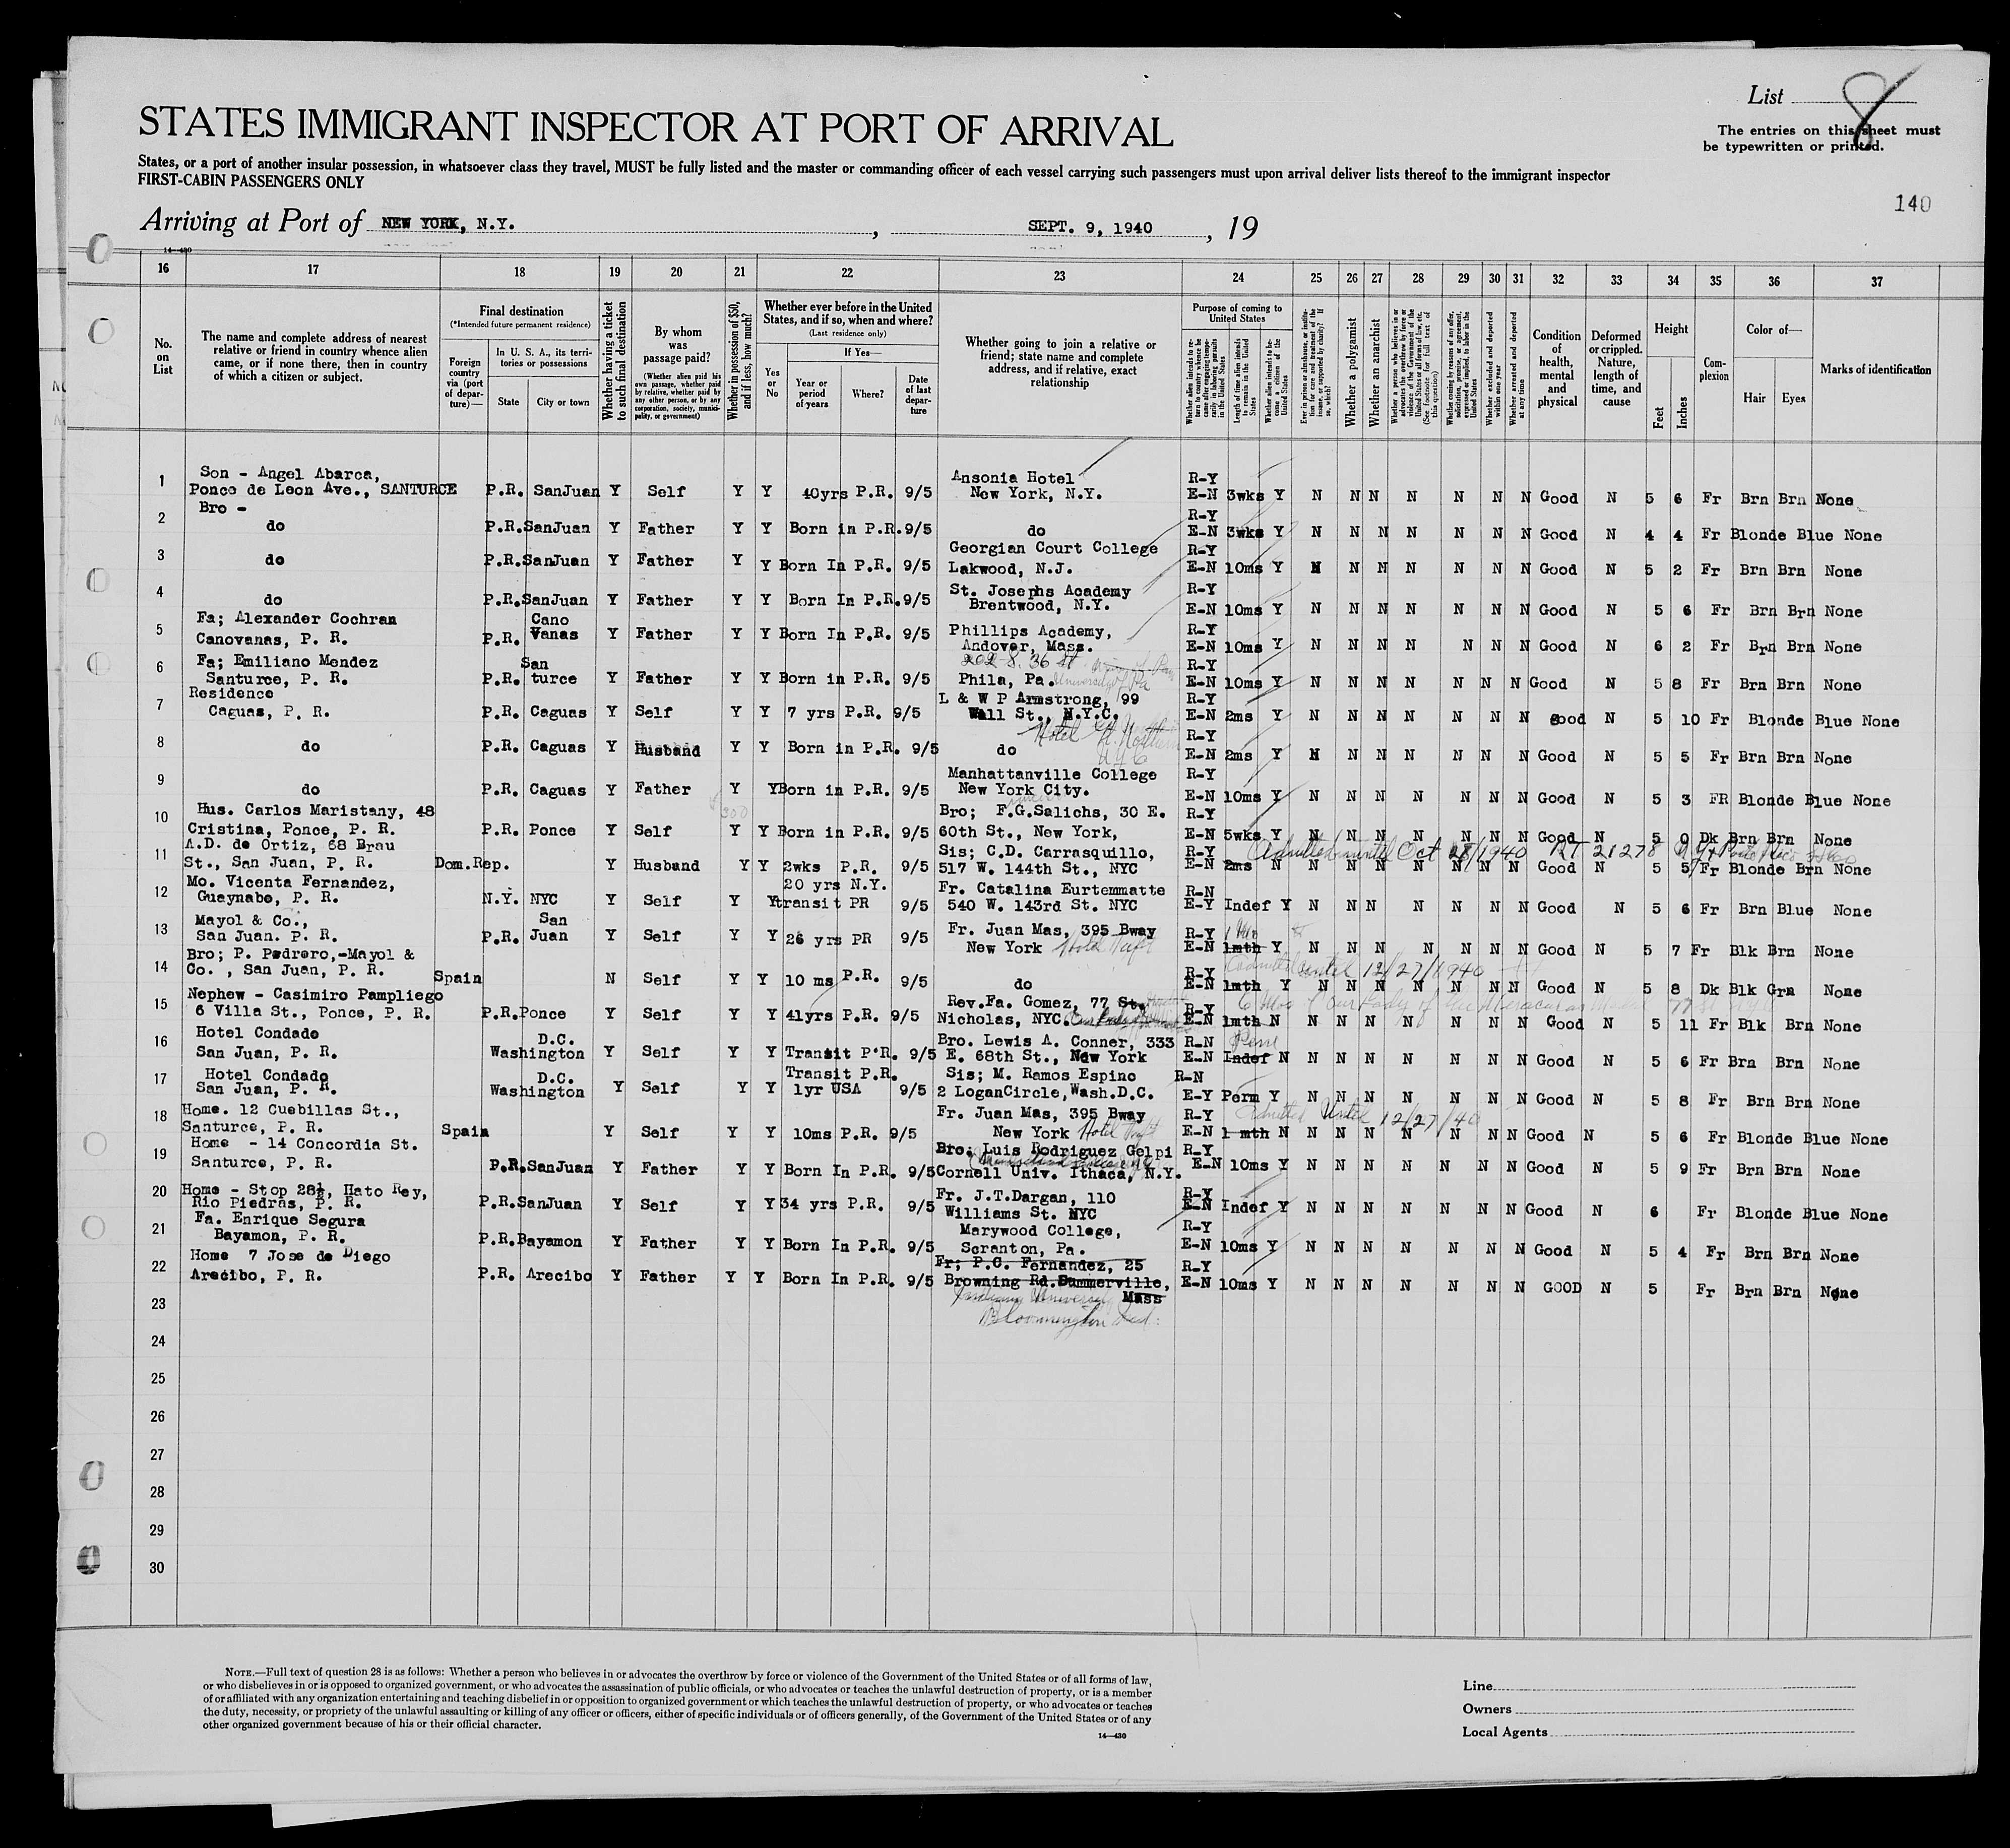 List 8
STATES IMMIGRANT INSPECTOR AT PORT OF ARRIVAL
The entries on this sheet must
be typewritten or printed.
States, or a port of another insular possession, in whatsoever class they travel, MUST be fully listed and the master or commanding officer of each vessel carrying such passengers must upon arrival deliver lists thereof to the immigrant inspector
FIRST-CABIN PASSENGERS ONLY
140
Arriving at Port of NEW YORK, N.Y. , SEPT. 9, 1940 , 19
14—430
16 17 18 19 20 21 22 23 24 25 26 27 28 29 30 31 32 33 34 35 36 37
No. on List
The name and complete address of nearest relative or friend in country whence alien came, or if none there, then in country of which a citizen or subject.
Final destination
(*Intended future permanent residence)
Foreign country via (port of departure)—
In U. S. A., its territories or possessions
State
City or town
Whether having a ticket to such final destination
By whom was passage paid?
(Whether alien paid his own passage, whether paid by relative, whether paid by any other person, or by any corporation, society, municipality, or government)
Whether in possession of $50, and if less, how much?
Whether ever before in the United States, and if so, when and where?
(Last residence only)
Yes or No
If Yes—
Year or period of years
Where?
Date of last departure
Whether going to join a relative or friend; state name and complete address, and if relative, exact relationship
Purpose of coming to United States
Whether alien intends to return to country whence he came after engaging temporarily in laboring pursuits in the United States
Length of time alien intends to remain in the United States
Whether alien intends to become a citizen of the United States
Ever in prison or almshouse, or institution for care and treatment of the insane, or supported by charity? If so, which?
Whether a polygamist
Whether an anarchist
Whether a person who believes in or advocates the overthrow by force or violence of the Government of the United States or all forms of law, etc. (See footnote for full text of this question)
Whether coming by reasons of any offer, solicitation, promise, or agreement, expressed or implied, to labor in the United States
Whether excluded and deported within one year
Whether arrested and deported at any time
Condition of health, mental and physical
Deformed or crippled. Nature, length of time, and cause
Height
Feet
Inches
Complexion
Color of—
Hair
Eyes
Marks of identification
1 Son - Angel Abarca, Ansonia Hotel R-Y
Ponce de Leon Ave., SANTURCE P.R. SanJuan Y Self Y Y 40yrs P.R. 9/5 New York, N.Y. E-N 3wks Y N N N N N N N Good N 5 6 Fr Brn Brn None
2 Bro - R-Y
do P.R. SanJuan Y Father Y Y Born in P.R. 9/5 do E-N 3wks Y N N N N N N N Good N 4 4 Fr Blonde Blue None
3 Georgian Court College R-Y
do P.R. SanJuan Y Father Y Y Born In P.R. 9/5 Lakwood, N.J. E-N 10ms Y N N N N N N N Good N 5 2 Fr Brn Brn None
4 St. Josephs Academy R-Y
do P.R. SanJuan Y Father Y Y Born In P.R. 9/5 Brentwood, N.Y. E-N 10ms Y N N N N N N N Good N 5 6 Fr Brn Brn None
5 Fa; Alexander Cochran Cano Phillips Academy, R-Y
Canovanas, P. R. P.R. Vanas Y Father Y Y Born In P.R. 9/5 Andover, Mass. E-N 10ms Y N N N N N N N Good N 6 2 Fr Brn Brn None
6 Fa; Emiliano Mendez San 202 S. 36 St R-Y
Santurce, P. R. P.R. turce Y Father Y Y Born in P.R. 9/5 Phila, Pa. University of Pa E-N 10ms Y N N N N N N N Good N 5 8 Fr Brn Brn None
7 Residence L & W P Armstrong, 99 R-Y
Caguas, P. R. P.R. Caguas Y Self Y Y 7 yrs P.R. 9/5 Wall St., N.Y.C. E-N 2ms Y N N N N N N N good N 5 10 Fr Blonde Blue None
Hotel Gt. Northern
8 R-Y
do P.R. Caguas Y Husband Y Y Born in P.R. 9/5 do NYC E-N 2ms Y N N N N N N N Good N 5 5 Fr Brn Brn None
9 Manhattanville College R-Y
do P.R. Caguas Y Father Y Y Born in P.R. 9/5 New York City. E-N 10ms Y N N N N N N N Good N 5 3 FR Blonde Blue None
10 Hus. Carlos Maristany, 48 $300 Bro; F.G.Salichs, 30 E. R-Y
Cristina, Ponce, P. R. P.R. Ponce Y Self Y Y Born in P.R. 9/5 60th St., New York, E-N 5wks Y N N N N N N N Good N 5 0 Dk Brn Brn None
11 A.D. de Ortiz, 68 Brau Sis; C.D. Carrasquillo, R-Y Admitted until Oct 28/1940 RT 21278
St., San Juan, P. R. Dom.Rep. Y Husband Y Y 2wks P.R. 9/5 517 W. 144th St., NYC E-N 2ms N N N N N N N N Good N 5 5 Fr Blonde Brn None
12 Mo. Vicenta Fernandez, 20 yrs N.Y. Fr. Catalina Eurtemmatte R-N
Guaynabo, P. R. N.Y. NYC Y Self Y Y transit PR 9/5 540 W. 143rd St. NYC E-Y Indef Y N N N N N N N Good N 5 6 Fr Brn Blue None
13 Mayol & Co., San Fr. Juan Mas, 395 Bway R-Y
San Juan. P. R. P.R. Juan Y Self Y Y 26 yrs PR 9/5 New York Hotel Taft E-N 1mth Y N N N N N N N Good N 5 7 Fr Blk Brn None
14 Bro; P. Pedrero,-Mayol & R-Y Admitted until 12/27/1940
Co. , San Juan, P. R. Spain N Self Y Y 10 ms P.R. 9/5 do E-N 1mth Y N N N N N N N Good N 5 8 Dk Blk Grn None
15 Nephew - Casimiro Pampliego Rev.Fa. Gomez, 77 St. R-Y 6 Mos
6 Villa St., Ponce, P. R. P.R. Ponce Y Self Y Y 41yrs P.R. 9/5 Nicholas, NYC. E-N 1mth N N N N N N N N Good N 5 11 Fr Blk Brn None
16 Hotel Condado D.C. Bro. Lewis A. Conner, 333 R-N Perm
San Juan, P. R. Washington Y Self Y Y Transit P.R. 9/5 E. 68th St., New York E-N Indef N N N N N N N N Good N 5 6 Fr Brn Brn None
17 Hotel Condado D.C. Transit P.R. Sis; M. Ramos Espino R-N
San Juan, P. R. Washington Y Self Y Y 1yr USA 9/5 2 LoganCircle,Wash.D.C. E-Y Perm Y N N N N N N N Good N 5 8 Fr Brn Brn None
18 Home. 12 Cuebillas St., Fr. Juan Mas, 395 Bway R-Y Admitted Until 12/27/40
Santurce, P. R. Spain Y Self Y Y 10ms P.R. 9/5 New York Hotel Taft E-N 1 mth N N N N N N N N Good N 5 6 Fr Blonde Blue None
19 Home - 14 Concordia St. Bro. Luis Rodriguez Gelpi R-Y
Santurce, P. R. P.R. SanJuan Y Father Y Y Born In P.R. 9/5 Cornell Univ. Ithaca, N.Y. E-N 10ms Y N N N N N N N Good N 5 9 Fr Brn Brn None
20 Home - Stop 28½, Hato Rey, Fr. J.T.Dargan, 110 R-Y
Rio Piedras, P. R. P.R. SanJuan Y Self Y Y 34 yrs P.R. 9/5 Williams St. NYC E-N Indef Y N N N N N N N Good N 6 Fr Blonde Blue None
21 Fa. Enrique Segura Marywood College, R-Y
Bayamon, P. R. P.R. Bayamon Y Father Y Y Born In P.R. 9/5 Scranton, Pa. E-N 10ms Y N N N N N N N Good N 5 4 Fr Brn Brn None
22 Home 7 Jose de Diego Fr; P.C. Fernandez, 25 R-Y
Arecibo, P. R. P.R. Arecibo Y Father Y Y Born In P.R. 9/5 Browning Rd.Summerville, E-N 10ms Y N N N N N N N GOOD N 5 Fr Brn Brn None
23 Indiana University Mass
Bloomington Ind.
24
25
26
27
28
29
30
NOTE.—Full text of question 28 is as follows: Whether a person who believes in or advocates the overthrow by force or violence of the Government of the United States or of all forms of law,
or who disbelieves in or is opposed to organized government, or who advocates the assassination of public officials, or who advocates or teaches the unlawful destruction of property, or is a member
of or affiliated with any organization entertaining and teaching disbelief in or opposition to organized government or which teaches the unlawful destruction of property, or who advocates or teaches
the duty, necessity, or propriety of the unlawful assaulting or killing of any officer or officers, either of specific individuals or of officers generally, of the Government of the United States or of any
other organized government because of his or their official character.
14—430
Line
Owners
Local Agents